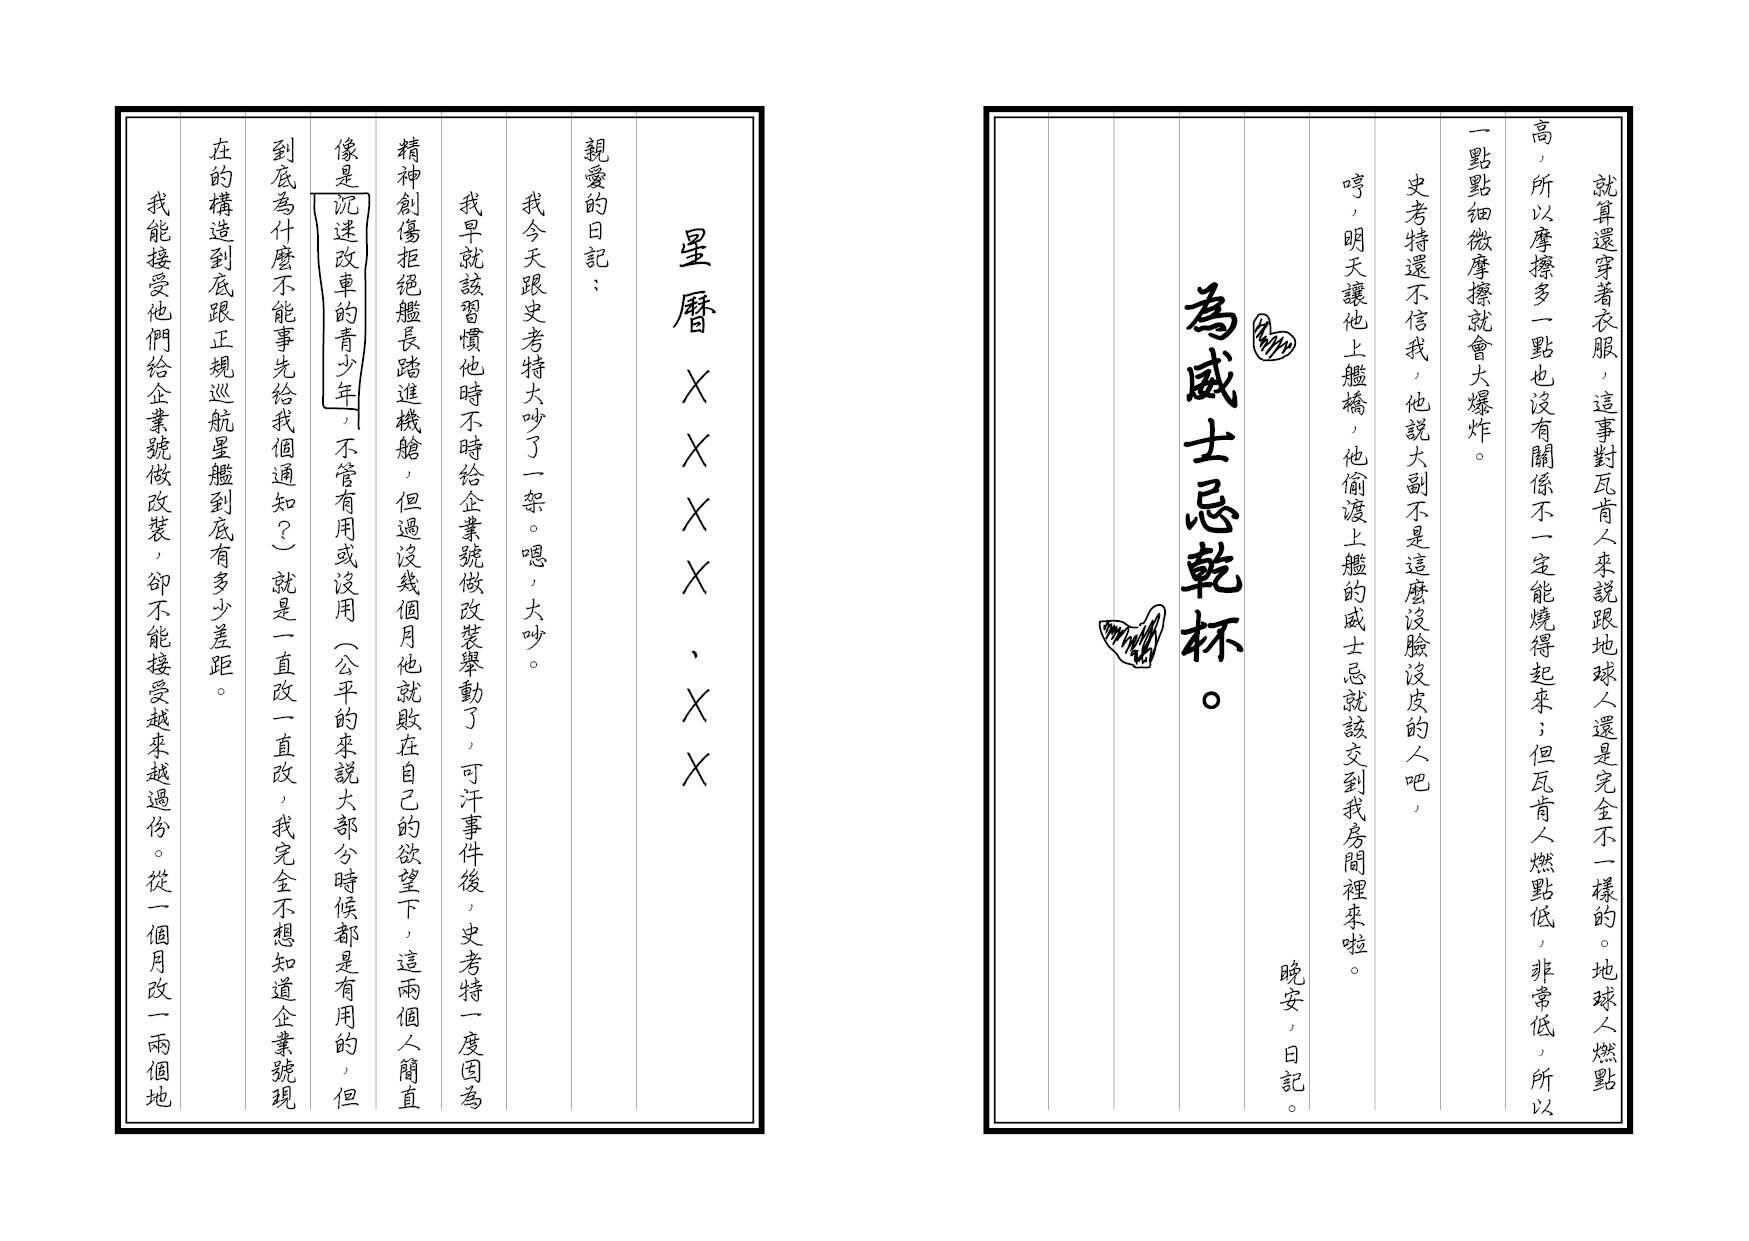 就算還穿著衣服，這事對瓦肯人來說跟地球人還是完全不一樣的。地球人燃點
高，所以摩擦多一點也沒有關係不一定能燒得起來；但瓦肯人燃點低，非常低，所以
一點點細微摩擦就會大爆炸。
史考特還不信我，他說大副不是這麼沒臉沒皮的人吧，
哼，明天讓他上艦橋，他偷渡上艦的威士忌就該交到我房間裡來啦。
晚安，日記。
為威士忌乾杯。
星曆XXXX、XX
親愛的日記；
我今天跟史考特大吵了一架。嗯，大吵。
我早就該習慣他時不時給企業號做改裝舉動了，可汗事件後，史考特一度因為
精神創傷拒絕艦長踏進機艙，但過沒幾個月他就敗在自己的欲望下，這兩個人簡直
像是沉迷改車的青少年，不管有用或沒用（公平的來說大部分時候都是有用的，但
到底為什麼不能事先給我個通知？）就是一直改一直改，我完全不想知道企業號現
在的構造到底跟正規巡航星艦到底有多少差距。
我能接受他們給企業號做改裝，卻不能接受越來越過份。從一個月改一兩個地